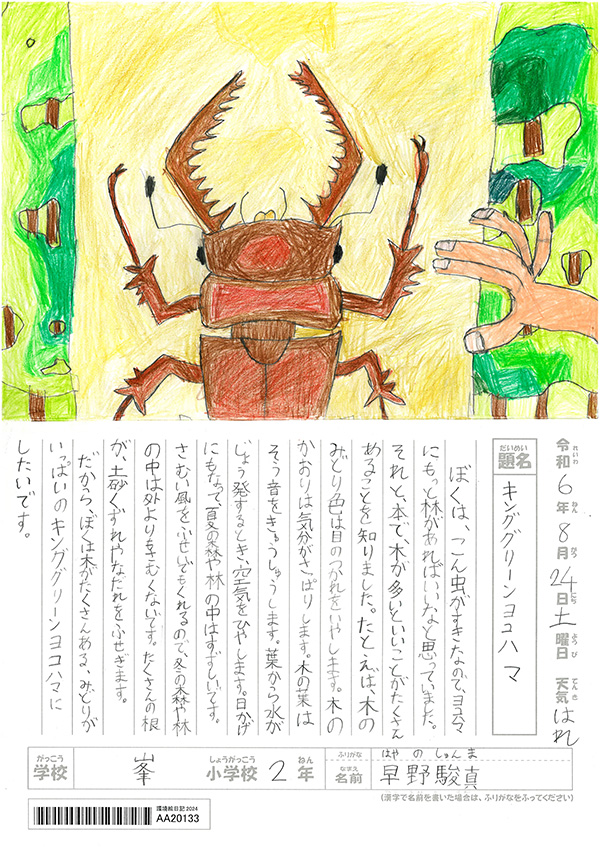 令和6年8月24日土曜日 天気 はれ
れいわ ねん がつ にち ようび てんき
だいめい
題名 キンググリーンヨコハマ
ぼくは、こん虫がすきなので、ヨコハマ
にもっと林があればいいなと思っていました。
それと、本で、木が多いといいことがたくさん
あることを知りました。たとえば、木の
みどり色は目のつかれをいやします。木の
かおりは気分がさっぱりします。木の葉は
そう音をきゅうしゅうします。葉から水が
じょう発するとき、空気をひやします。日かげ
にもなって、夏の森や林の中はすずしいです。
さむい風をふせいでもくれるので、冬の森や林
の中は外よりもさむくないです。たくさんの根
が、土砂くずれやなだれをふせぎます。
だから、ぼくは木がたくさんある、みどりが
いっぱいのキンググリーンヨコハマに
したいです。
がっこう しょうがっこう ねん
学校 峯 小学校 2年
ふりがな はや の しゅん ま
なまえ
名前 早野駿真
(漢字で名前を書いた場合は、ふりがなをふってください)
環境絵日記2024
AA20133